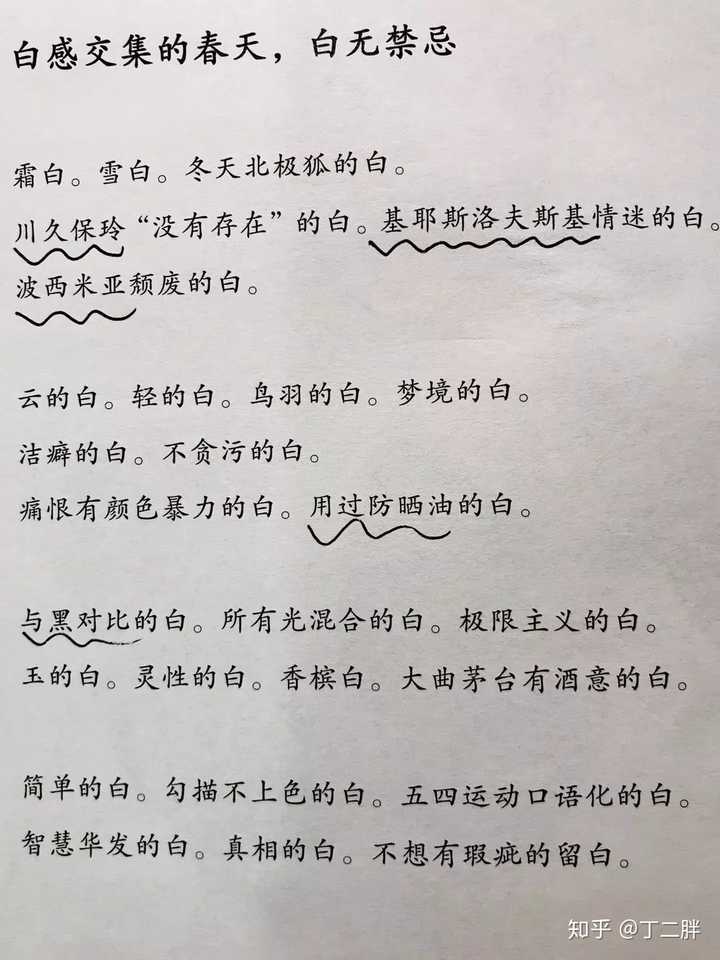 白感交集的春天，白无禁忌
霜白。雪白。冬天北极狐的白。
川久保玲“没有存在”的白。基耶斯洛夫斯基情迷的白。
波西米亚颓废的白。
云的白。轻的白。鸟羽的白。梦境的白。
洁癖的白。不贪污的白。
痛恨有颜色暴力的白。用过防晒油的白。
与黑对比的白。所有光混合的白。极限主义的白。
玉的白。灵性的白。香槟白。大曲茅台有酒意的白。
简单的白。勾描不上色的白。五四运动口语化的白。
智慧华发的白。真相的白。不想有瑕疵的留白。
知乎 @丁二胖